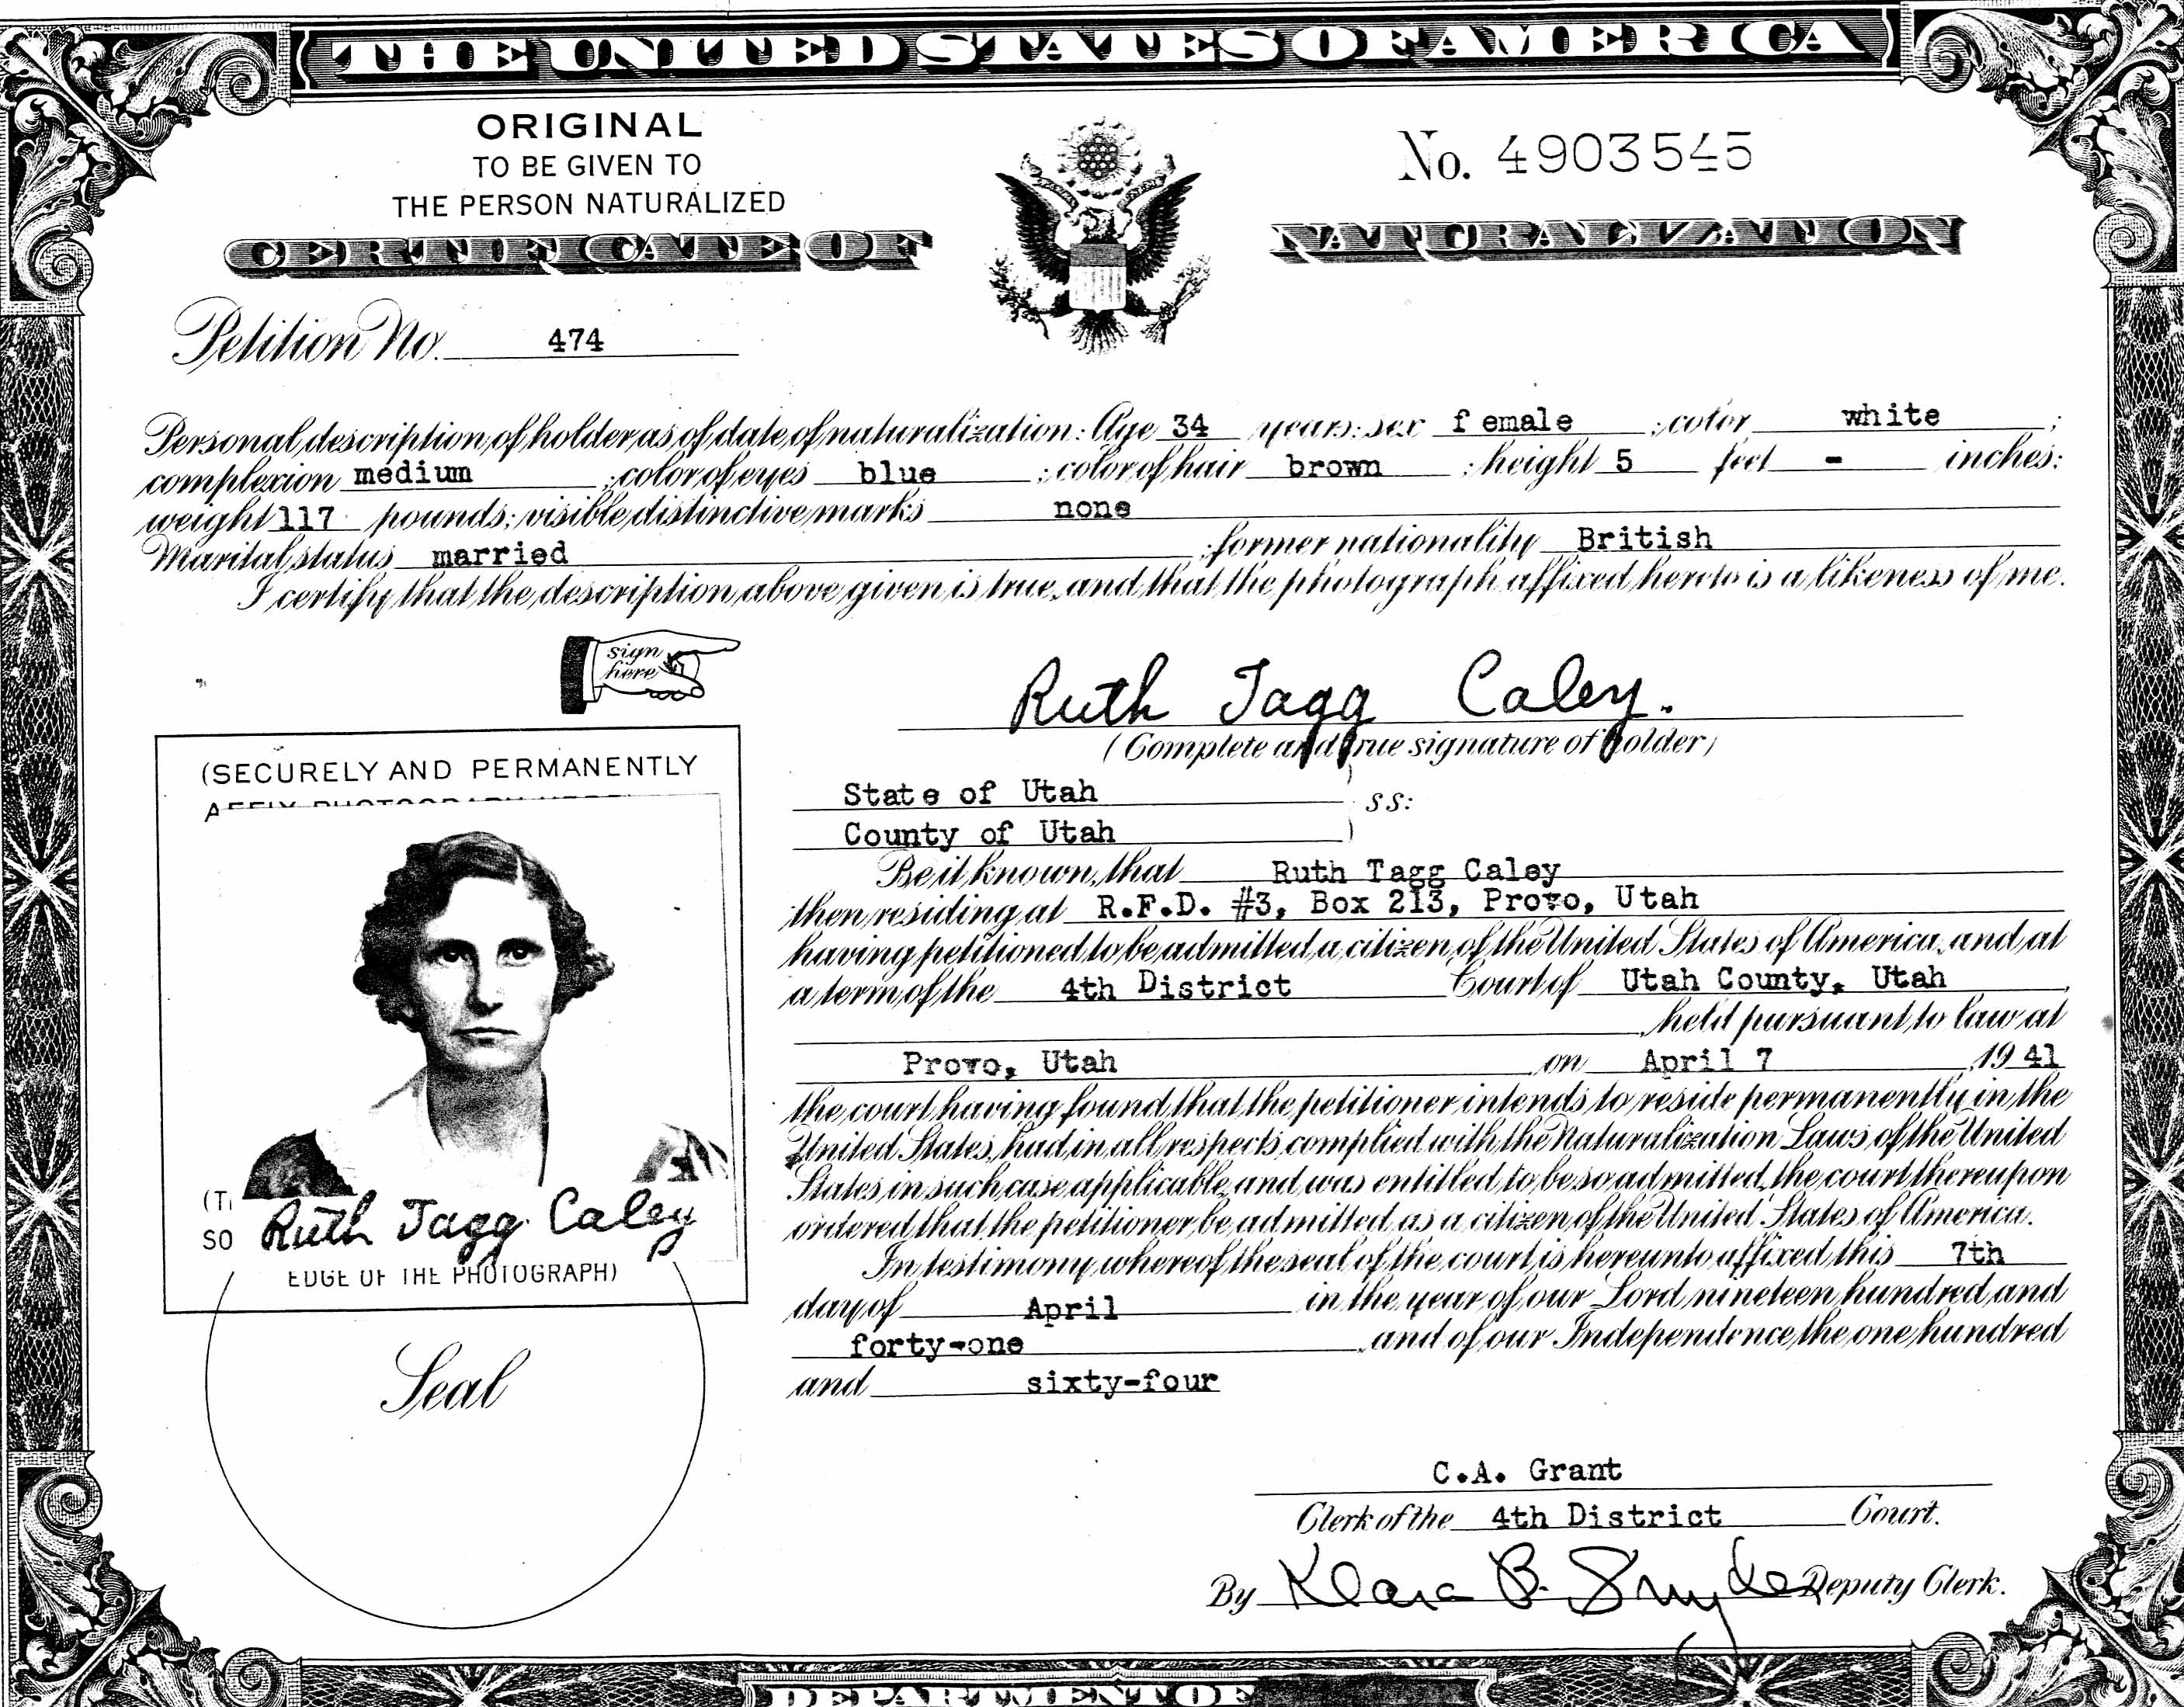 THE UNITED STATES OF AMERICA
ORIGINAL
TO BE GIVEN TO
THE PERSON NATURALIZED
No. 4903545
CERTIFICATE OF NATURALIZATION
Petition No. 474
Personal description of holder as of date of naturalization: Age 34 years; sex female ; color white ;
complexion medium ; color of eyes blue ; color of hair brown ; height 5 feet - inches;
weight 117 pounds; visible distinctive marks none
Marital status married ; former nationality British
I certify that the description above given is true, and that the photograph affixed hereto is a likeness of me.
sign
here
Ruth Tagg Caley.
(Complete and true signature of holder)
(SECURELY AND PERMANENTLY
AFFIX PHOTOGRAPH HERE)
Ruth Tagg Caley
SO
EDGE OF THE PHOTOGRAPH)
Seal
State of Utah
County of Utah
ss:
Be it known, that Ruth Tagg Caley
then residing at R.F.D. #3, Box 213, Provo, Utah
having petitioned to be admitted a citizen of the United States of America, and at
a term of the 4th District Court of Utah County, Utah,
held pursuant to law at
Provo, Utah on April 7 , 1941
the court having found that the petitioner intends to reside permanently in the
United States, had in all respects complied with the Naturalization Laws of the United
States in such case applicable, and was entitled to be so admitted, the court thereupon
ordered that the petitioner be admitted as a citizen of the United States of America.
In testimony whereof the seal of the court is hereunto affixed this 7th
day of April in the year of our Lord nineteen hundred and
forty-one , and of our Independence the one hundred
and sixty-four
C.A. Grant
Clerk of the 4th District Court.
By Klara B. Snyder Deputy Clerk.
DEPARTMENT OF